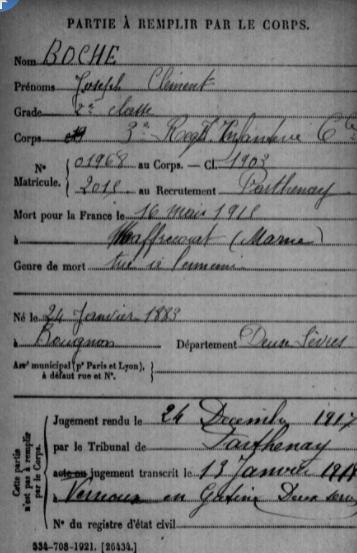 PARTIE À REMPLIR PAR LE CORPS.
Nom BOCHE
Prénoms Joseph Clément
Grade 2e classe
Corps 3e Regt Infanterie Cle
N° Matricule. 01968 au Corps. — Cl. 1903
2015 au Recrutement Parthenay
Mort pour la France le 16 mars 1915
à Maffrecourt (Marne)
Genre de mort tué à l'ennemi
Né le 24 Janvier 1883
à Rougnon Département Deux Sèvres
Arr' municipal (p' Paris et Lyon), à défaut rue et N°.
Cette partie n'est pas à remplir par le Corps.
Jugement rendu le 24 Decembre 1917
par le Tribunal de Parthenay
acte ou jugement transcrit le 13 Janvier
à Vernoux en Gatine Deux Sevres
N° du registre d'état civil
534-708-1921. [26434.]